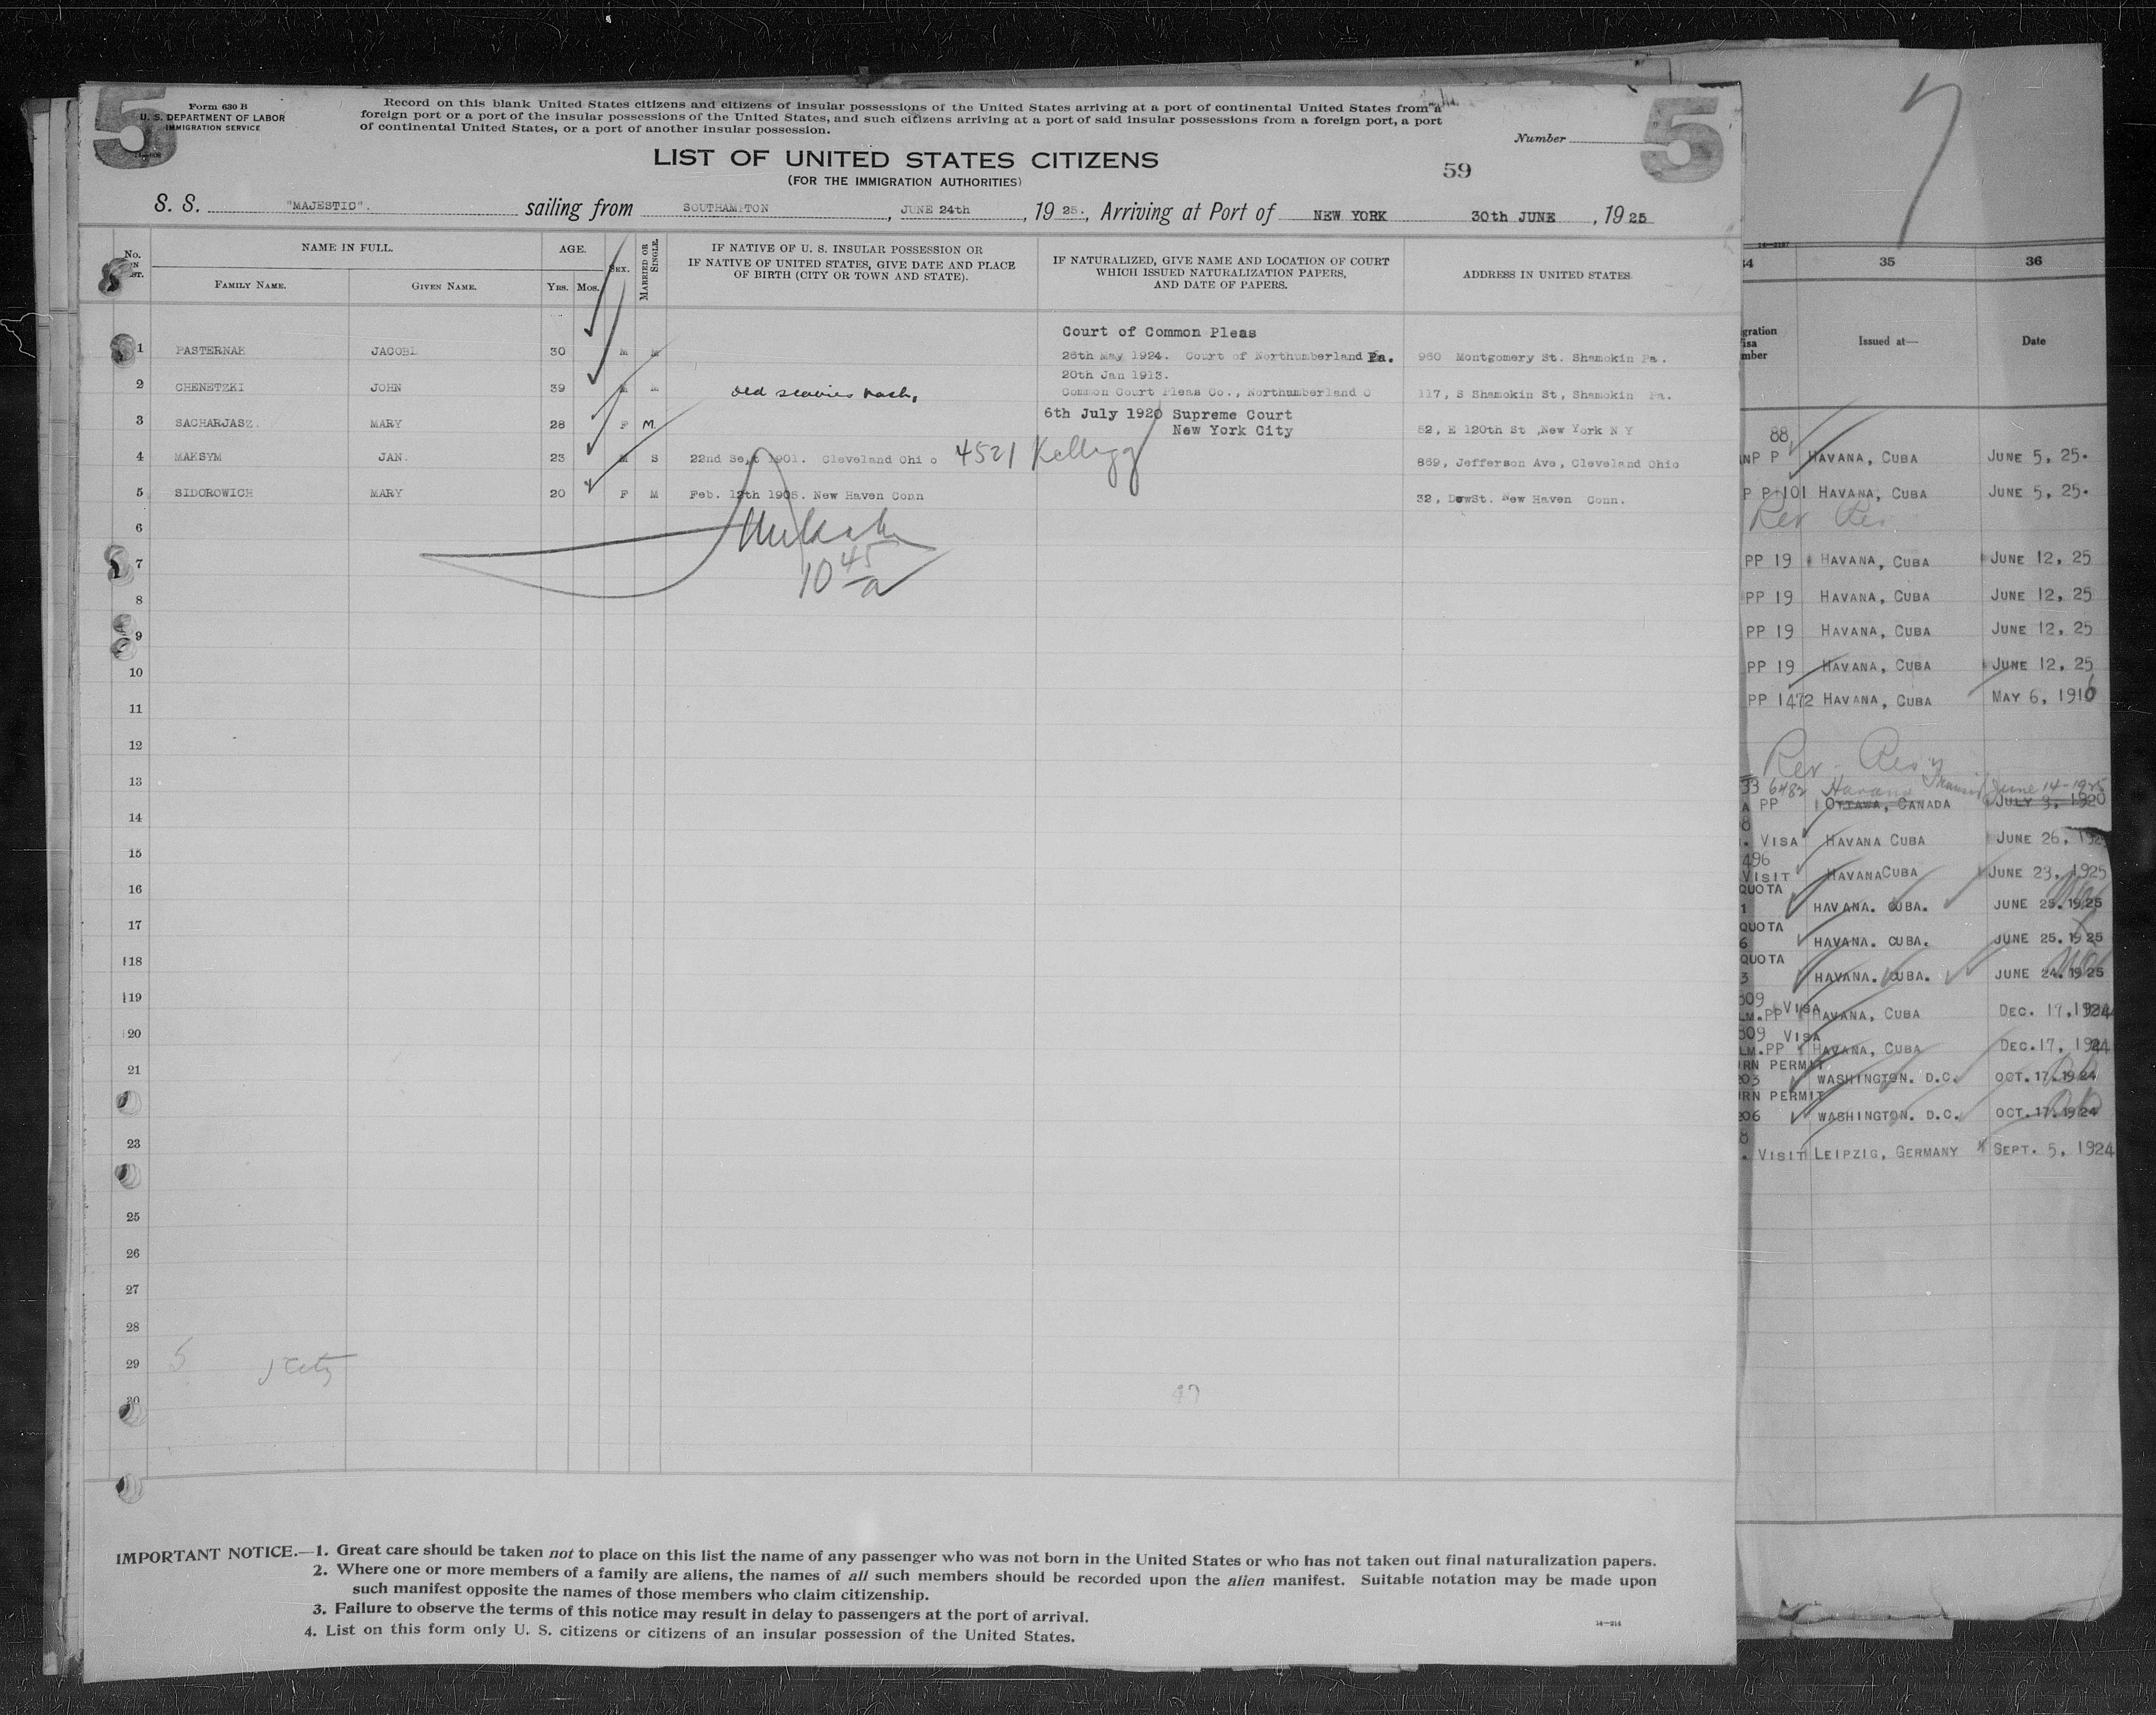 5
Form 630 B
U. S. DEPARTMENT OF LABOR
IMMIGRATION SERVICE
Record on this blank United States citizens and citizens of insular possessions of the United States arriving at a port of continental United States from a
foreign port or a port of the insular possessions of the United States, and such citizens arriving at a port of said insular possessions from a foreign port, a port
of continental United States, or a port of another insular possession.
Number
5
LIST OF UNITED STATES CITIZENS
(FOR THE IMMIGRATION AUTHORITIES)
59
S. S. "MAJESTIC". sailing from SOUTHAMPTON, JUNE 24th, 1925., Arriving at Port of NEW YORK 30th JUNE, 1925
No.
NAME IN FULL.
FAMILY NAME.
GIVEN NAME.
AGE.
YRS. MOS.
SEX.
MARRIED OR SINGLE.
IF NATIVE OF U. S. INSULAR POSSESSION OR
IF NATIVE OF UNITED STATES, GIVE DATE AND PLACE
OF BIRTH (CITY OR TOWN AND STATE).
IF NATURALIZED, GIVE NAME AND LOCATION OF COURT
WHICH ISSUED NATURALIZATION PAPERS,
AND DATE OF PAPERS.
ADDRESS IN UNITED STATES.
Court of Common Pleas
1 PASTERNAK JACOB 30 M M 26th May 1924. Court of Northumberland Pa. 960 Montgomery St. Shamokin Pa.
20th Jan 1913.
2 CHENETZKI JOHN 39 M M old scabies rash, Common Court Pleas Co., Northamberland C 117, S Shamokin St, Shamokin Pa.
3 SACHARJASZ. MARY 28 F M. 6th July 1920 Supreme Court 52, E 120th St ,New York N Y
New York City
4 MAKSYM JAN. 23 M S 22nd Sept 1901. Cleveland Ohi o 4521 Kellogg 869, Jefferson Ave, Cleveland Ohio
5 SIDOROWICH MARY 20 F M Feb. 12th 1905. New Haven Conn 32, DowSt. New Haven Conn.
6
7
10 45 a
8
9
10
11
12
13
14
15
16
17
18
19
20
21
23
25
26
27
28
29 5
30
47
IMPORTANT NOTICE.—1. Great care should be taken not to place on this list the name of any passenger who was not born in the United States or who has not taken out final naturalization papers.
2. Where one or more members of a family are aliens, the names of all such members should be recorded upon the alien manifest. Suitable notation may be made upon
such manifest opposite the names of those members who claim citizenship.
3. Failure to observe the terms of this notice may result in delay to passengers at the port of arrival.
4. List on this form only U. S. citizens or citizens of an insular possession of the United States.
14—214
7
14—2187
34 35 36
Issued at—
Date
88
P HAVANA, CUBA JUNE 5, 25.
P P 101 HAVANA, CUBA JUNE 5, 25.
Rev Res
PP 19 HAVANA, CUBA JUNE 12, 25
PP 19 HAVANA, CUBA JUNE 12, 25
PP 19 HAVANA, CUBA JUNE 12, 25
PP 19 HAVANA, CUBA JUNE 12, 25
PP 1472 HAVANA, CUBA MAY 6, 1916
Rev - Res
33 6482 Havana Transit June 14-1925
PP OTTAWA, CANADA JULY 9, 1920
VISA HAVANA CUBA JUNE 26, 1925
496
VISIT HAVANA CUBA JUNE 23, 1925
QUOTA
1 HAVANA. CUBA. JUNE 25.1925
QUOTA
6 HAVANA. CUBA. JUNE 25.1925
QUOTA
3 HAVANA. CUBA. JUNE 24.1925
309 VISA
LM.PP HAVANA, CUBA DEC. 17, 1924
309 VISA
LM.PP HAVANA, CUBA DEC.17, 1924
RN PERMIT
203 WASHINGTON. D.C. OCT.17.1924
RN PERMIT
206 WASHINGTON. D.C. OCT.17.1924
8
VISIT LEIPZIG, GERMANY SEPT. 5, 1924